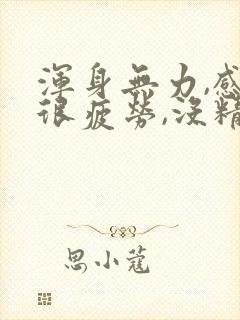 渾身無力,感
很疲勞,沒精
思小蔻